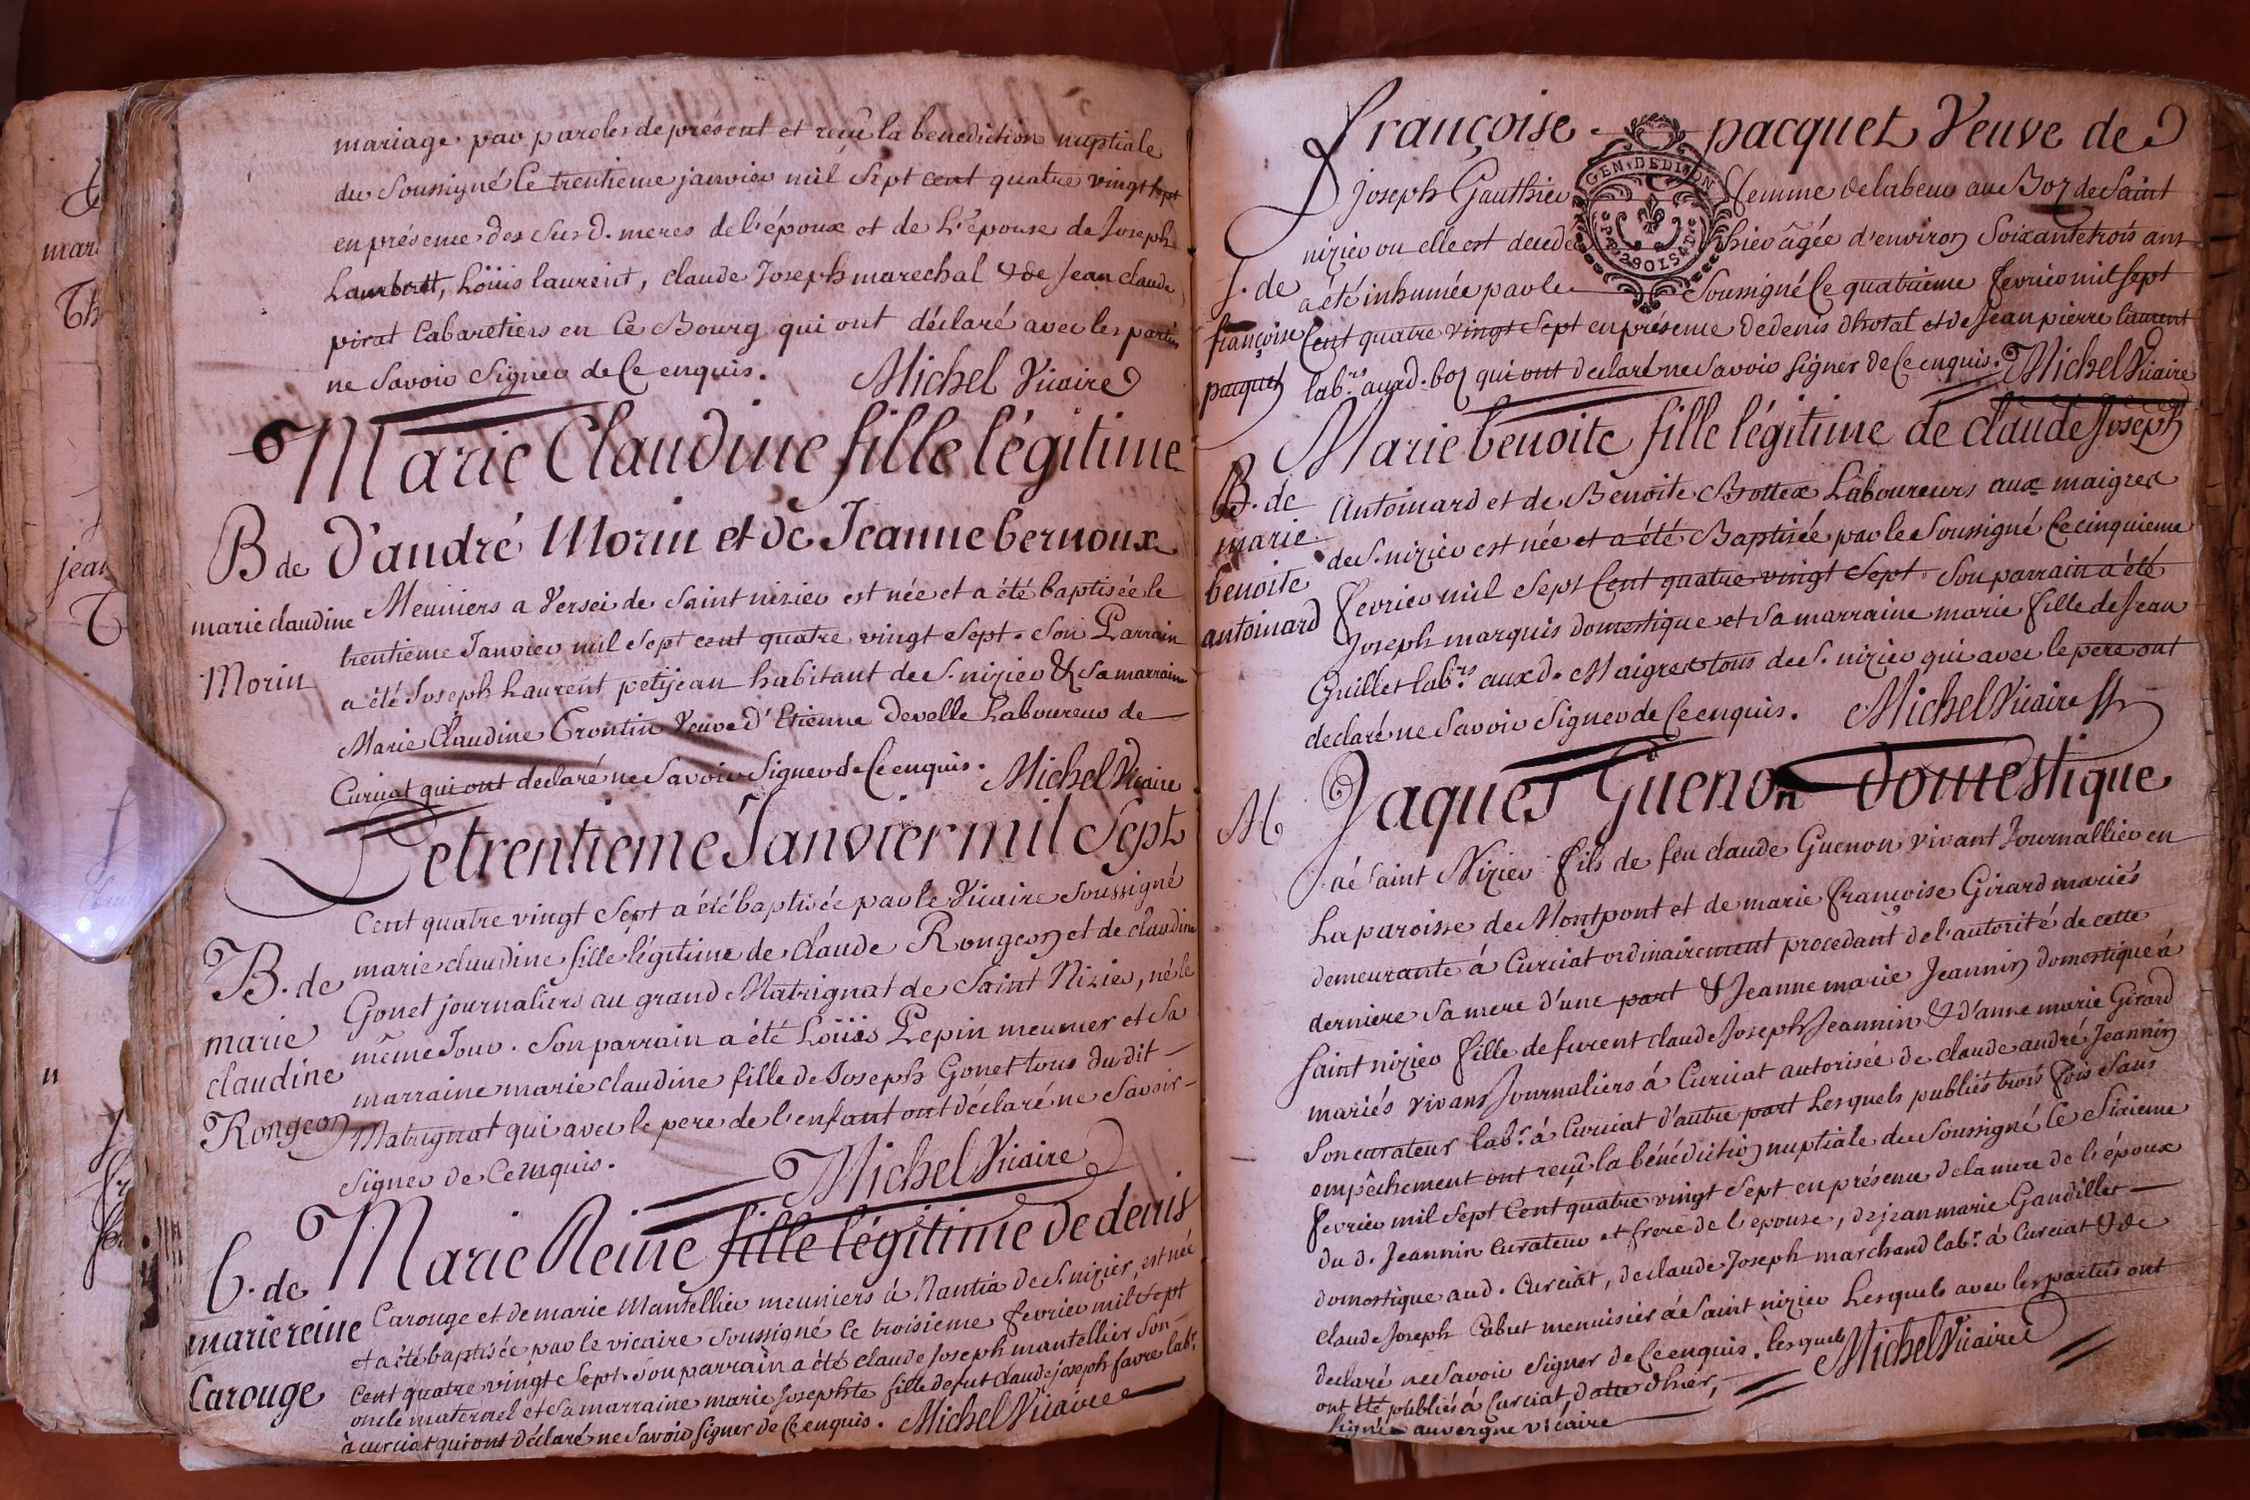 mariage par paroles de présent et reçu la benediction nuptiale
du soussigné le trentieme janvier mil sept cent quatre vingt sept
en présence des susd. meres de l'époux et de L'épouse de Joseph
Loüis laurent, claude Joseph marechal & de Jean claude
pirat Cabaretiers en Ce Bourg qui ont déclaré avec les parties
ne savoir signer de Ce enquis. Michel Vicaire
Marie Claudine fille légitime
B de d'andré Morin et de Jeanne bernoux
marie claudine Meuniers a Versei de Saint nizier est née et a été baptisée le
trentieme Janvier mil sept cent quatre vingt sept. son Parrain
Morin a été Joseph Laurent petijean habitant de S. nizier & sa marraine
Marie Claudine Trontin Veuve d'Etienne Develle Laboureur de
Curciat qui ont declaré ne Savoir Signer de Ce enquis. Michel Vicaire
Le trentieme Janvier mil Sept
Cent quatre vingt sept a été baptisée par le Vicaire soussigné
B. de marie claudine fille légitime de claude Rongeon et de claudine
Gonet journaliers au grand Matrignat de Saint Nizier, né le
marie même Jour. Son parrain a été Loüis Pepin meunier et sa
claudine marraine marie claudine fille de Joseph Gonet tous du dit
Rongeon Matrignat qui avec le pere de l'enfant ont déclaré ne savoir
signer de Ce enquis. Michel Vicaire
B. de Marie Reine fille légitime de denis
Carouge et de marie Mantellier meuniers à Nantiâ de S. nizier, est née
marie reine et a été baptisée par le vicaire soussigné le troisieme fevrier mil sept
Cent quatre vingt Sept. Son parrain a été claude Joseph mantellier son
Carouge oncle maternel et sa marraine marie Josephte fille de fut claude joseph favre labr.
à curciat qui ont déclaré ne savoir signer de Ce enquis. Michel Vicaire
françoise pacquet Veuve de
joseph Gauthier femme de labeur au Boz de Saint
nizier ou elle est decedée hier âgée d'environ soixante trois ans
S. de a été inhumée par le soussigné le quatrieme fevrier mil sept
françoise Cent quatre vingt sept en présence de denis dhotal et de Jean pierre laurent
pacquet labrs. aud. boz qui ont declaré ne savoir signer de Ce enquis. Michel Vicaire
Marie benoite fille légitime de claude Joseph
B. de Antoinard et de Benoite Brottex Laboureurs aux maigres
marie de S. nizier est née et a été Baptisée par le soussigné le cinquieme
benoite fevrier mil sept Cent quatre vingt sept. son parrain a été
antoinard Joseph marquis domestique et sa marraine marie fille de Jean
Guillet labrs. aux d. Maigres tous de S. nizier qui avec le pere ont
declaré ne Savoir Signer de Ce enquis. Michel Vicaire
M Jaques Guenon domestique
à Saint Nizier fils de feu claude Guenon vivant Journallier en
La paroisse de Montpont et de marie françoise Girard mariés
demeurante à Curciat ordinairement procedant de l'autorité de cette
derniere sa mere d'une part & Jeanne marie Jeannin domestique à
Saint nizier fille de furent claude Joseph Jeannin & d'anne marie Girard
mariés vivans Journaliers à Curciat autorisée de claude andré Jeannin
Son curateur labr. à Curciat d'autre part Lesquels publiés trois fois sans
empêchement ont reçu la bénédiction nuptiale du soussigné le Sixieme
fevrier mil sept Cent quatre vingt sept en présence de la mere de l'époux
du d. Jeannin Curateur et frere de l'epouse, de jean marie Gaudiller
domestique aud. Curciat, de claude Joseph marchand labr. à Curciat & de
claude Joseph Cabut menuisier à Saint nizier Lesquels avec les parties ont
declaré ne savoir signer de Ce enquis. lesquels Michel Vicaire
ont été publiés à Curciat, datte d'hier,
Signé auvergne vicaire
GEN. DE DIJON